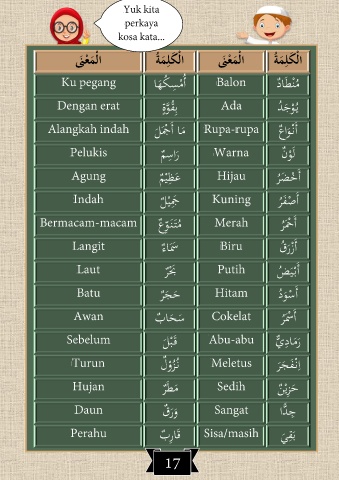 Yuk kita
perkaya
kosa kata...
الْمَعْنَى الْكَلِمَةُ الْمَعْنَى الْكَلِمَةُ
Ku pegang أُمْسِكُهَا Balon مُنْطَادٌ
Dengan erat بِقُوَّةٍ Ada يُوْجَدُ
Alangkah indah مَا أَجْمَلَ Rupa-rupa أَنْوَاعٌ
Pelukis رَاسِمٌ Warna لَوْنٌ
Agung عَظِيْمٌ Hijau أَخْضَرُ
Indah جَمِيْلٌ Kuning أَصْفَرُ
Bermacam-macam مُتَنَوِّعٌ Merah أَحْمَرُ
Langit سَمَاءٌ Biru أَزْرَقُ
Laut بَحْرٌ Putih أَبْيَضُ
Batu حَجَرٌ Hitam أَسْوَدُ
Awan سَحَابٌ Cokelat أَسْمَرُ
Sebelum قَبْلَ Abu-abu رَمَادِيٌّ
Turun نُزُوْلٌ Meletus اِنْفَجَرَ
Hujan مَطَرٌ Sedih حَزِيْنٌ
Daun وَرَقٌ Sangat جِدًّا
Perahu قَارِبٌ Sisa/masih بَقِيَ
17